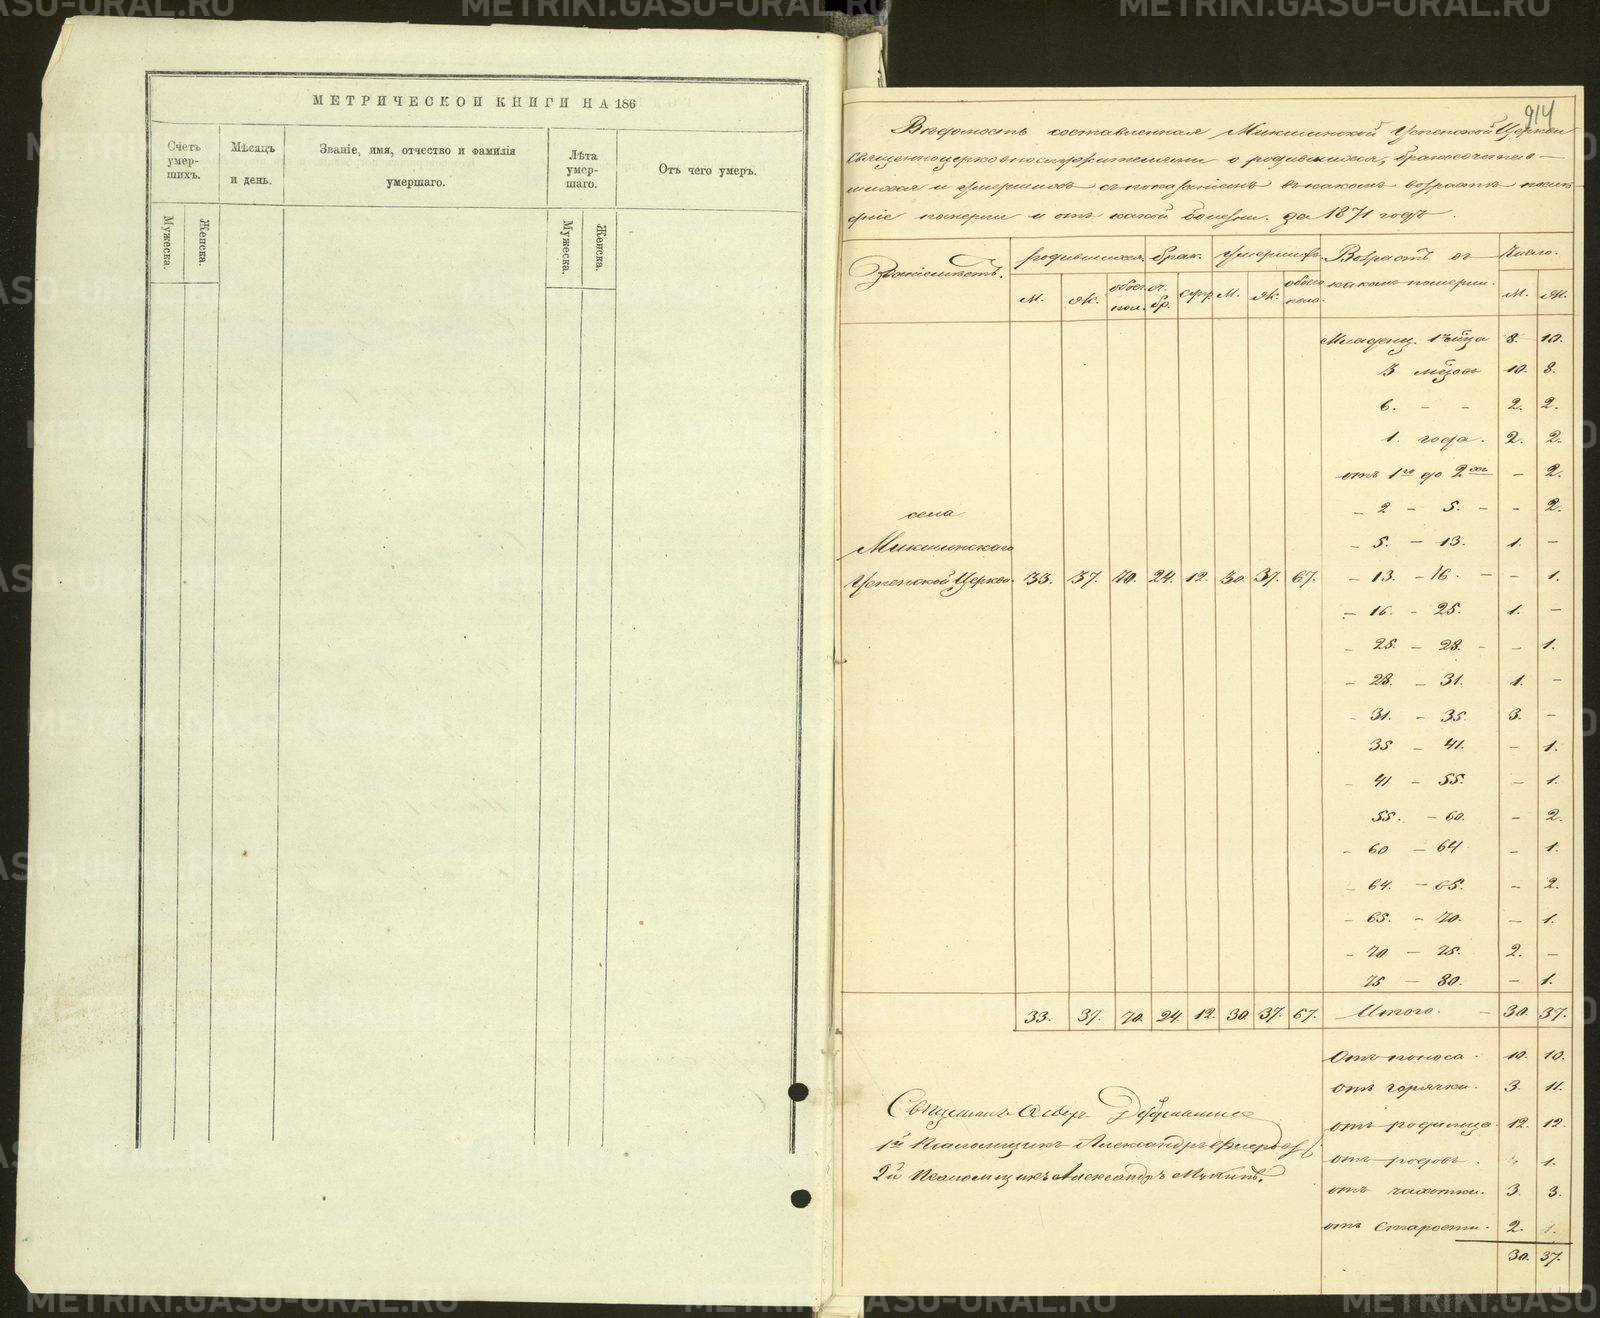 МЕТРИЧЕСКОЙ КНИГИ НА 186
Счетъ умер-шихъ.
Мѣсяцъ и день.
Званіе, имя, отчество и фамилія умершаго.
Лѣта умер-шаго.
Отъ чего умеръ.
Мужеска.
Женска.
Мужеска.
Женска.
914
Вѣдомость составленная Микшинской Успенской Церкви
Священноцерковнослужителями о родившихся, бракосочетав-
шихся и умершихъ съ показаніемъ въ какомъ возрастѣ
померли и отъ какой болезни. за 1871 годъ.
родившихся. брак. умершихъ. Возрастъ въ Число.
м. ж. обоег. пол. бр. м. ж. обоего пола. какомъ померли. м. ж.
Младенц. 8. 10.
3 10. 8.
6. - - 2. 2.
1. года. 2. 2.
отъ 1го до 2хъ - 2.
- 2 - 5. - - 2.
села
Микшинскаго
- 5. - 13. 1. -
Успенской Церкви. 33. 37. 70. 24. 12. 30. 37. 67. - 13. - 16. - - 1.
- 16. - 25. 1. -
- 25. - 28. - - 1.
- 28 - 31. 1. -
- 31. - 35. 3. -
35 - 41. - 1.
- 41 - 55. - 1.
55. - 60. - 2.
- 60 - 64 - 1.
- 64. - 65. - 2.
- 65. - 70. - 1.
- 70 - 75. 2. -
75 - 80. - 1.
33. 37. 70. 24. 12. 30. 37. 67. Итого. - 30. 37.
Отъ поноса. 10. 10.
отъ горячки. 3. 11.
отъ родимца. 12. 12.
отъ родовъ. 1.
отъ чахотки. 3. 3.
отъ старости. 2. 1.
30. 37.
Священникъ
1й Псаломщикъ Александръ
2й Псаломщикъ Александръ
METRIKI.GASO-URAL.RU